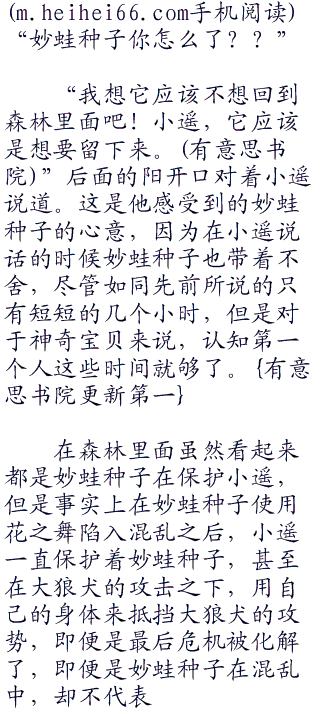 (m.heihei66.com手机阅读)
“妙蛙种子你怎么了？？”
“我想它应该不想回到
森林里面吧！小遥，它应该
是想要留下来。(有意思书
院)”后面的阳开口对着小遥
说道。这是他感受到的妙蛙
种子的心意，因为在小遥说
话的时候妙蛙种子也带着不
舍，尽管如同先前所说的只
有短短的几个小时，但是对
于神奇宝贝来说，认知第一
个人这些时间就够了。{有意
思书院更新第一}
在森林里面虽然看起来
都是妙蛙种子在保护小遥，
但是事实上在妙蛙种子使用
花之舞陷入混乱之后，小遥
一直保护着妙蛙种子，甚至
在大狼犬的攻击之下，用自
己的身体来抵挡大狼犬的攻
势，即便是最后危机被化解
了，即便是妙蛙种子在混乱
中，却不代表